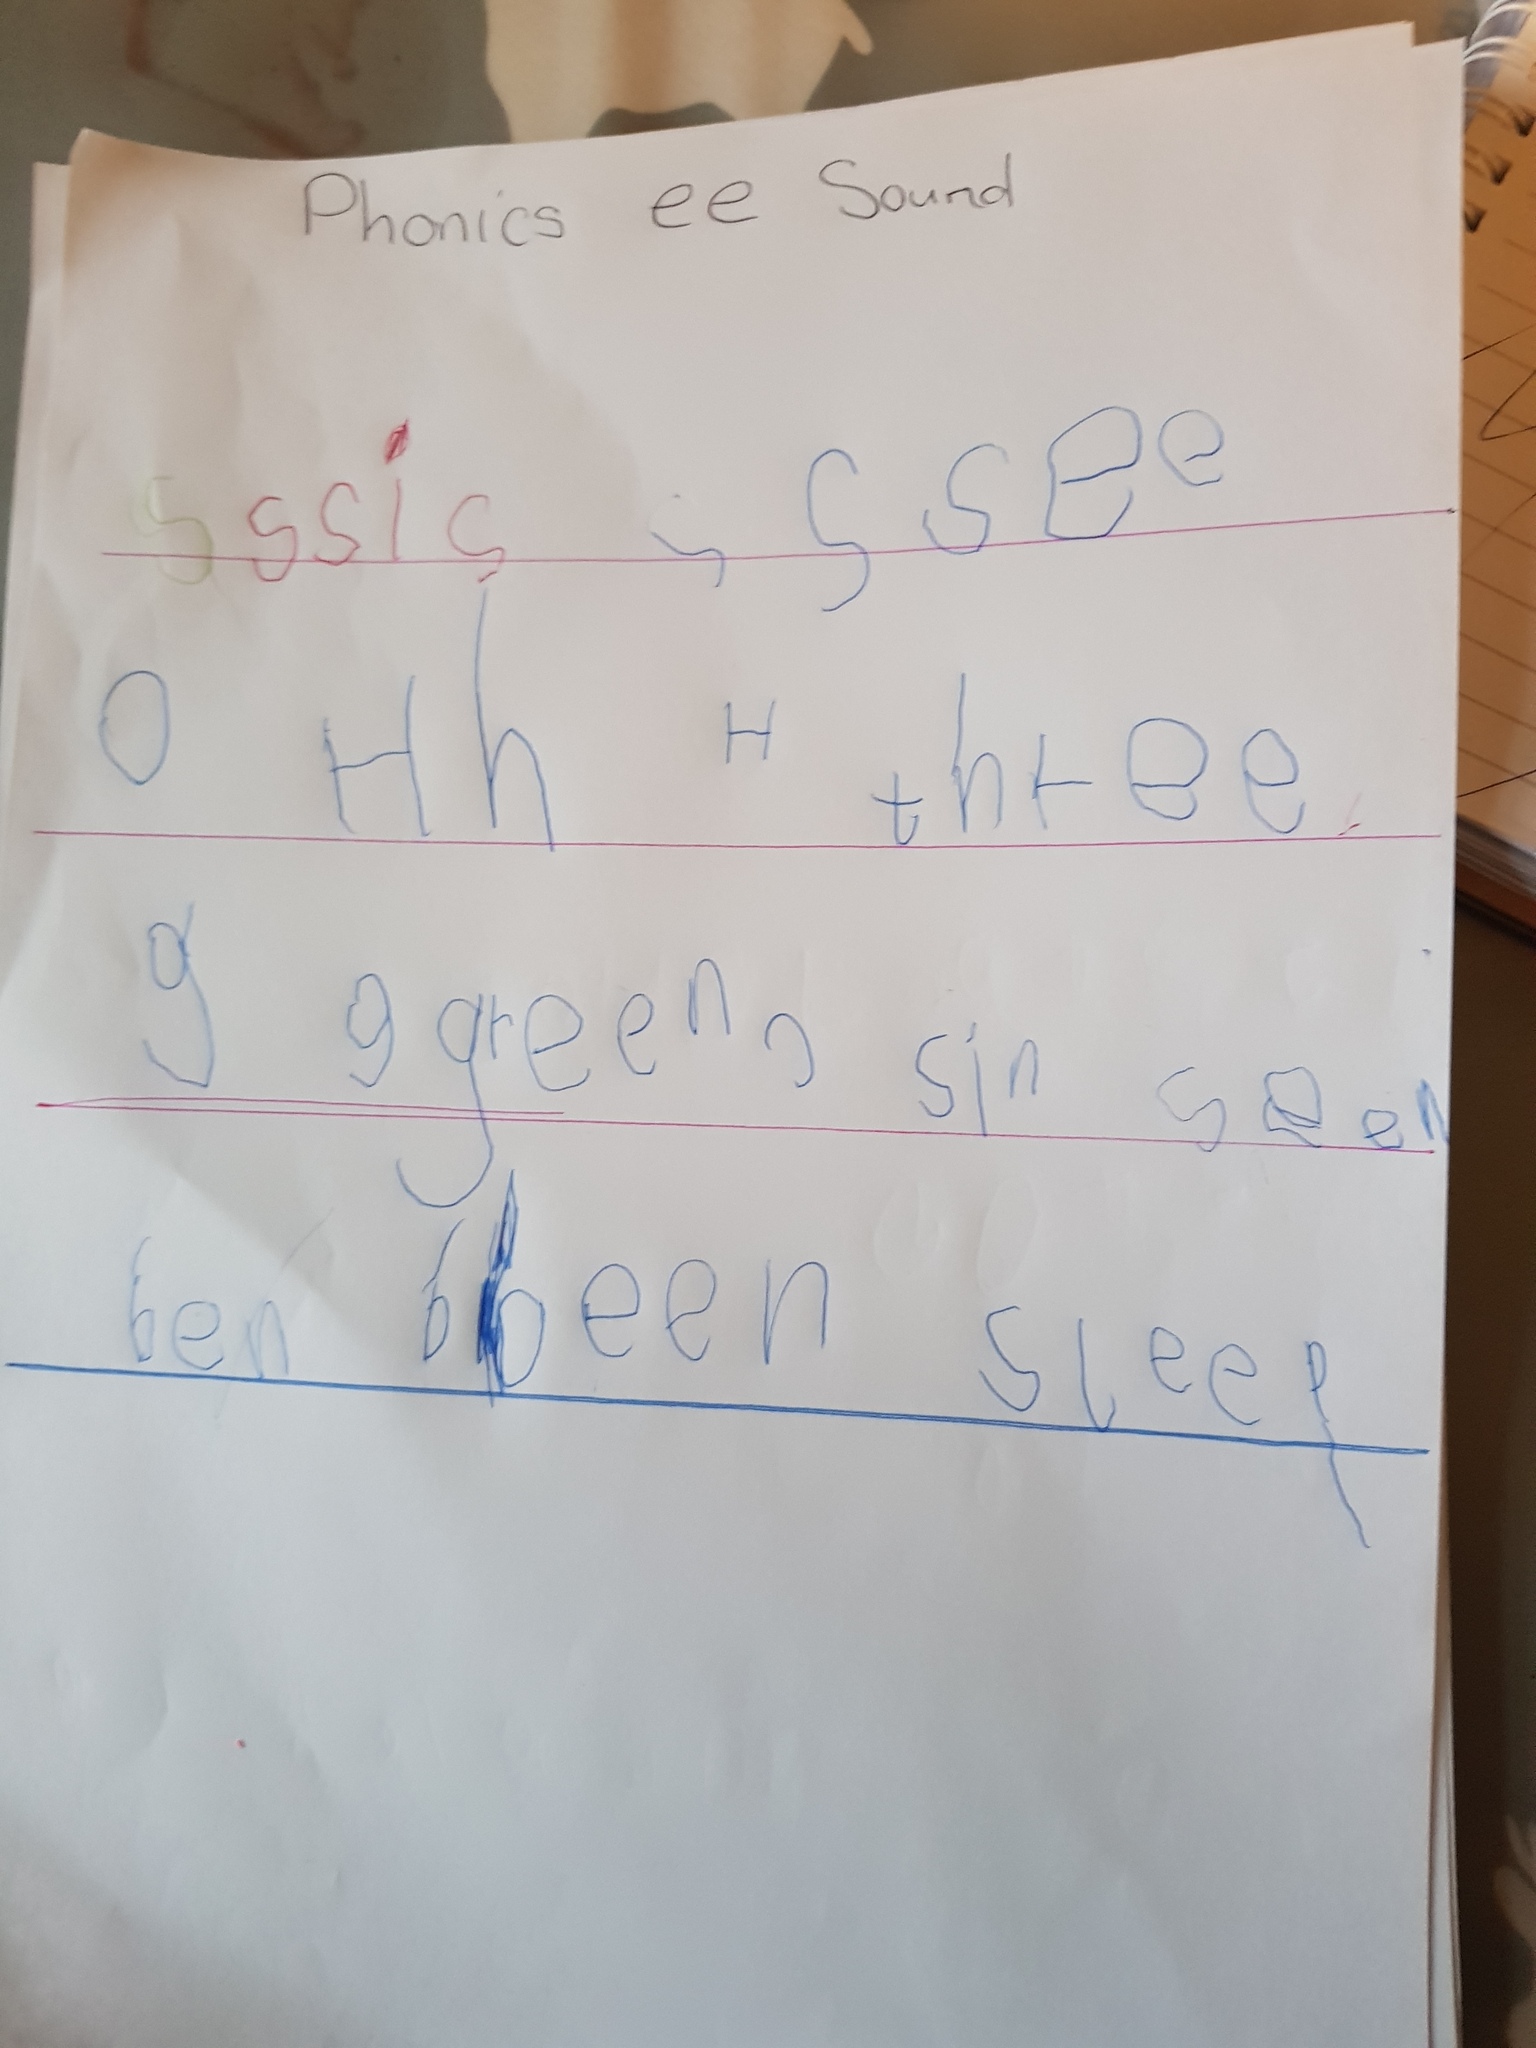 Phonics ee Sound
s s s i s s s see
O H h H three
g g green n sin seen
ben b been sleep